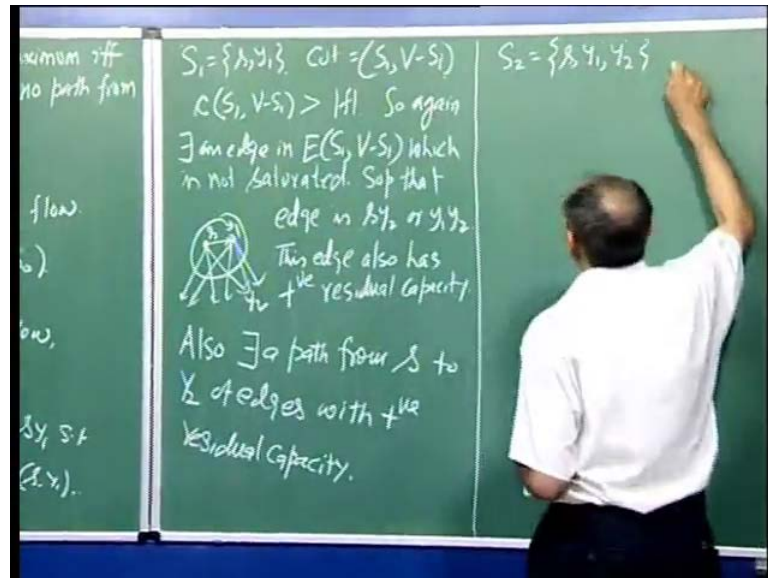 ximum iff
no path from
flow.
ow,
sy, s.t
(s.y₁).
S₁ = {s, y₁}. Cut = (S₁, V-S₁)
c(S₁, V-S₁) > |f| So again
∃ an edge in E(S₁, V-S₁) which
is not saturated. Sop that
edge is sy₂ or y₁y₂
This edge also has
+ve residual capacity.
s y₁
y₂
Also ∃ a path from s to
y₂ of edges with +ve
residual capacity.
S₂ = {s, y₁, y₂}